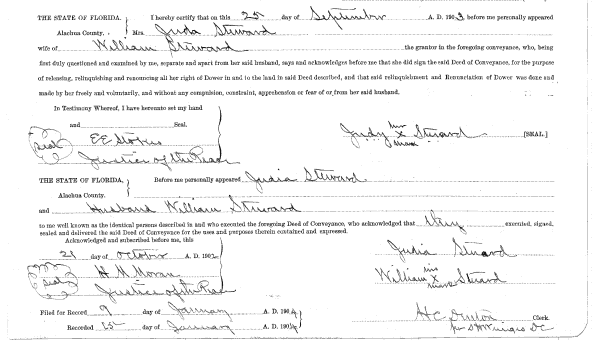 THE STATE OF FLORIDA, I hereby certify that on this 25 day of September A. D. 1903 before me personally appeared
Alachua County. Mrs Juda Steward
wife of William Steward the grantor in the foregoing conveyance, who, being
first duly questioned and examined by me, separate and apart from her said husband, says and acknowledges before me that she did sign the said Deed of Conveyance, for the purpose
of releasing, relinquishing and renouncing all her right of Dower in and to the land in said Deed described, and that said relinquishment and Renunciation of Dower was done and
made by her freely and voluntarily, and without any compulsion, constraint, apprehension or fear of or from her said husband.
In Testimony Whereof, I have hereunto set my hand
and Seal.
her
Seal EE Stokes Judy X Steward [SEAL]
mark
Justice of the Peace
THE STATE OF FLORIDA, Before me personally appeared Judia Steward
Alachua County.
and Husband William Steward
to me well known as the identical persons described in and who executed the foregoing Deed of Conveyance, who acknowledged that they executed, signed,
sealed and delivered the said Deed of Conveyance for the uses and purposes therein contained and expressed.
Acknowledged and subscribed before me, this
21 day of October A. D. 190 Judia Steward
Seal H M Moran his
William X Steward
mark
Justice of the Peace
Filed for Record 9 day of January A. D. 1904 H C Clerk.
Recorded 15 day of January A. D. 1904 per D C